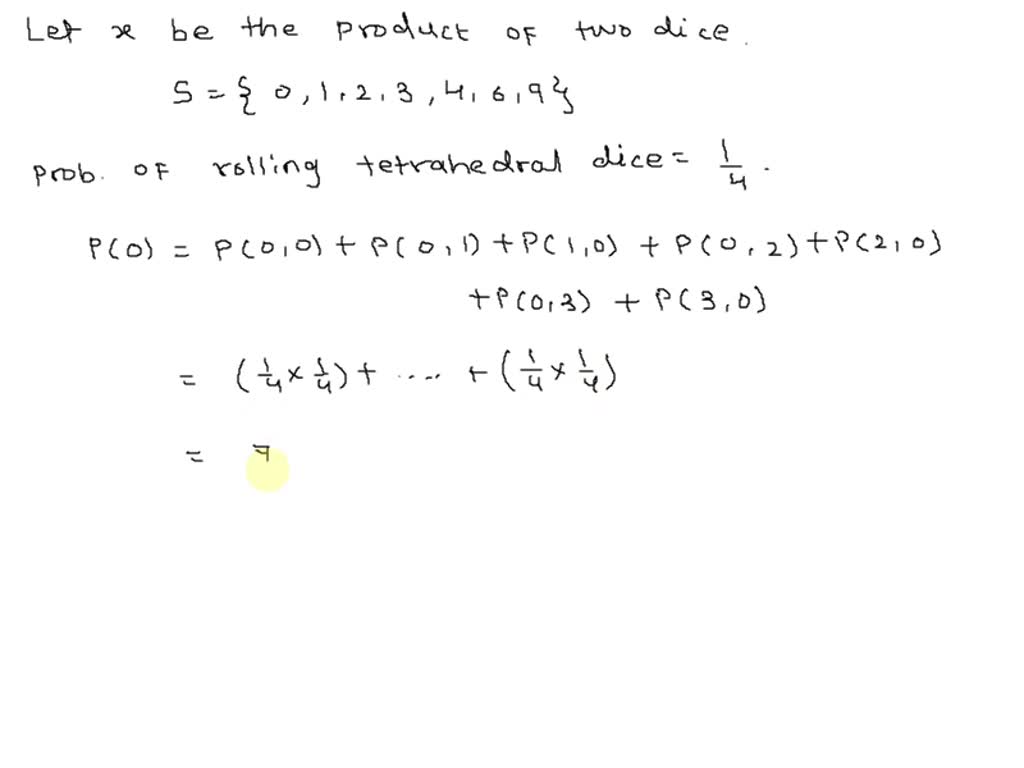 Let x be the product of two dice.
S = { 0, 1, 2, 3, 4, 6, 9 }
Prob. of rolling tetrahedral dice = 1/4.
P(0) = P(0,0) + P(0,1) + P(1,0) + P(0,2) + P(2,0)
+ P(0,3) + P(3,0)
= (1/4 × 1/4) + .... + (1/4 × 1/4)
= 7